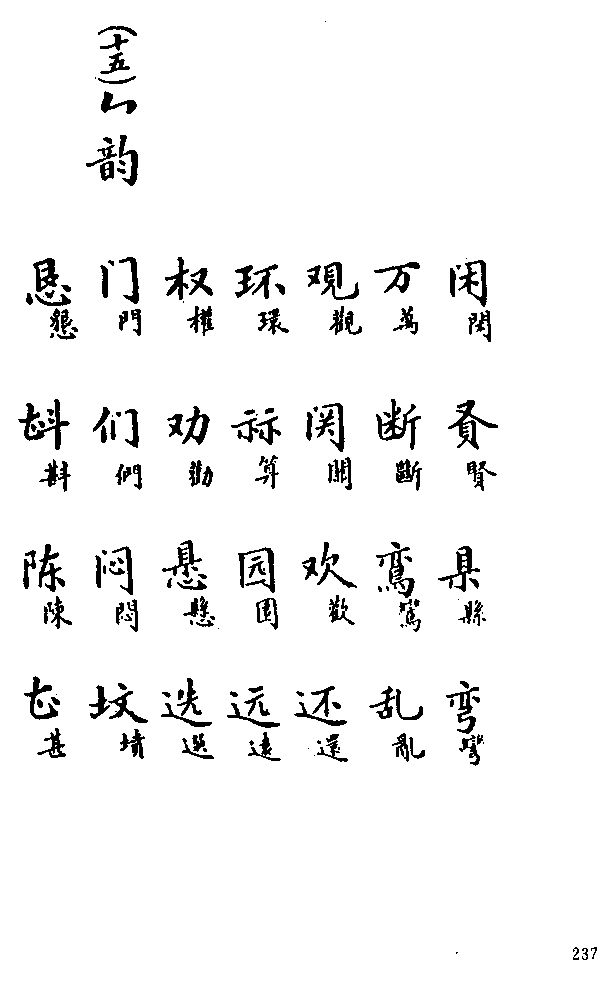 闲 閑 賢 県 縣 弯 彎
万 萬 断 斷 鸾 鸞 乱 亂
观 觀 関 關 欢 歡 还 還
环 環 祘 算 园 園 远 遠
权 權 劝 勸 悬 懸 选 選
(十五)ㄣ韵 门 門 们 們 闷 悶 坟 墳
恳 懇 斟 陈 陳 甚
237